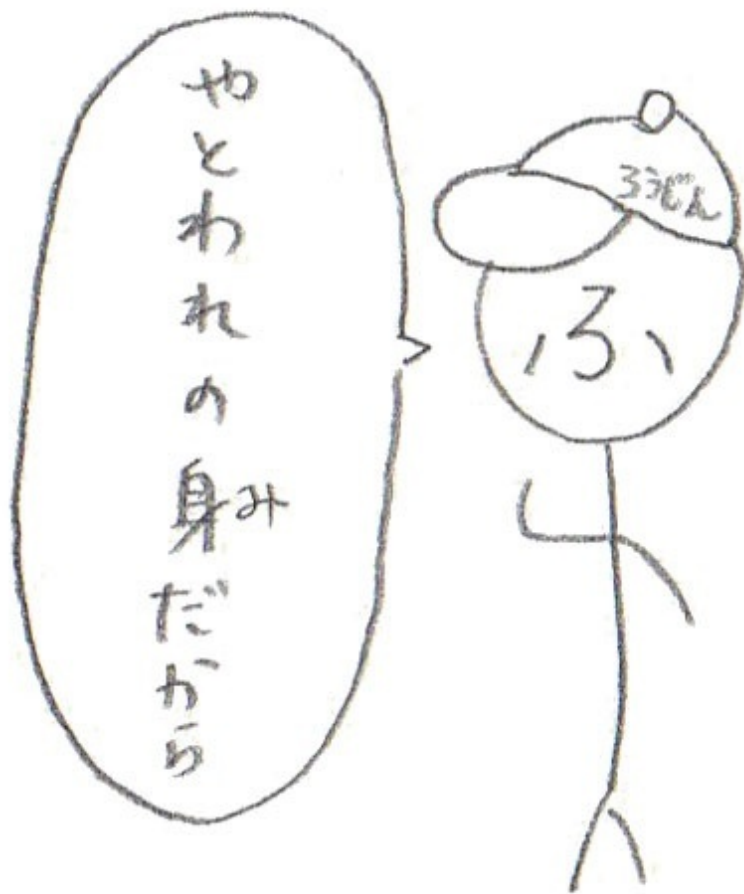 やとわれの身だから
み
ろうじん
ふ